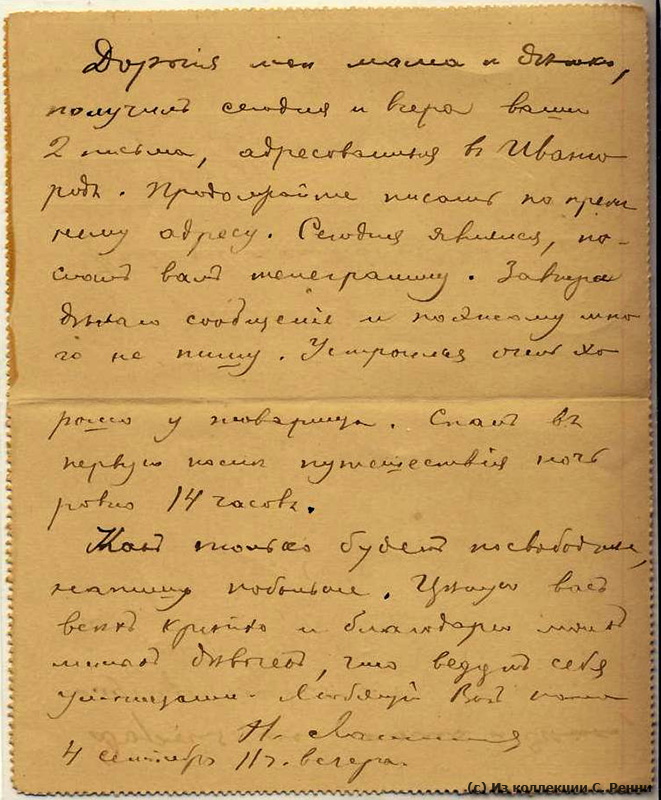 Дорогія мои мама и дѣтки,
получилъ сегодня и вчера ваши
2 письма, адресованныя въ Ивано
родъ. Продолжайте писать по преж
нему адресу. Сегодня явился, по-
слалъ вамъ телеграмму. Завтра
дѣлаю сообщеніе и поэтому мно
го не пишу. Устроился очень хо
рошо у товарища. Спалъ въ
первую послѣ путешествія ночь
ровно 14 часовъ.
Какъ только будетъ посвободнѣе,
напишу побольше. Цѣлую васъ
всѣхъ крѣпко и благодарю моихъ
милыхъ дѣвочекъ, что ведутъ себя
умницами. Любящій Васъ папа
Н.
4 сентябрь 11 ч. вечера.
(c) Из коллекции С. Ренни